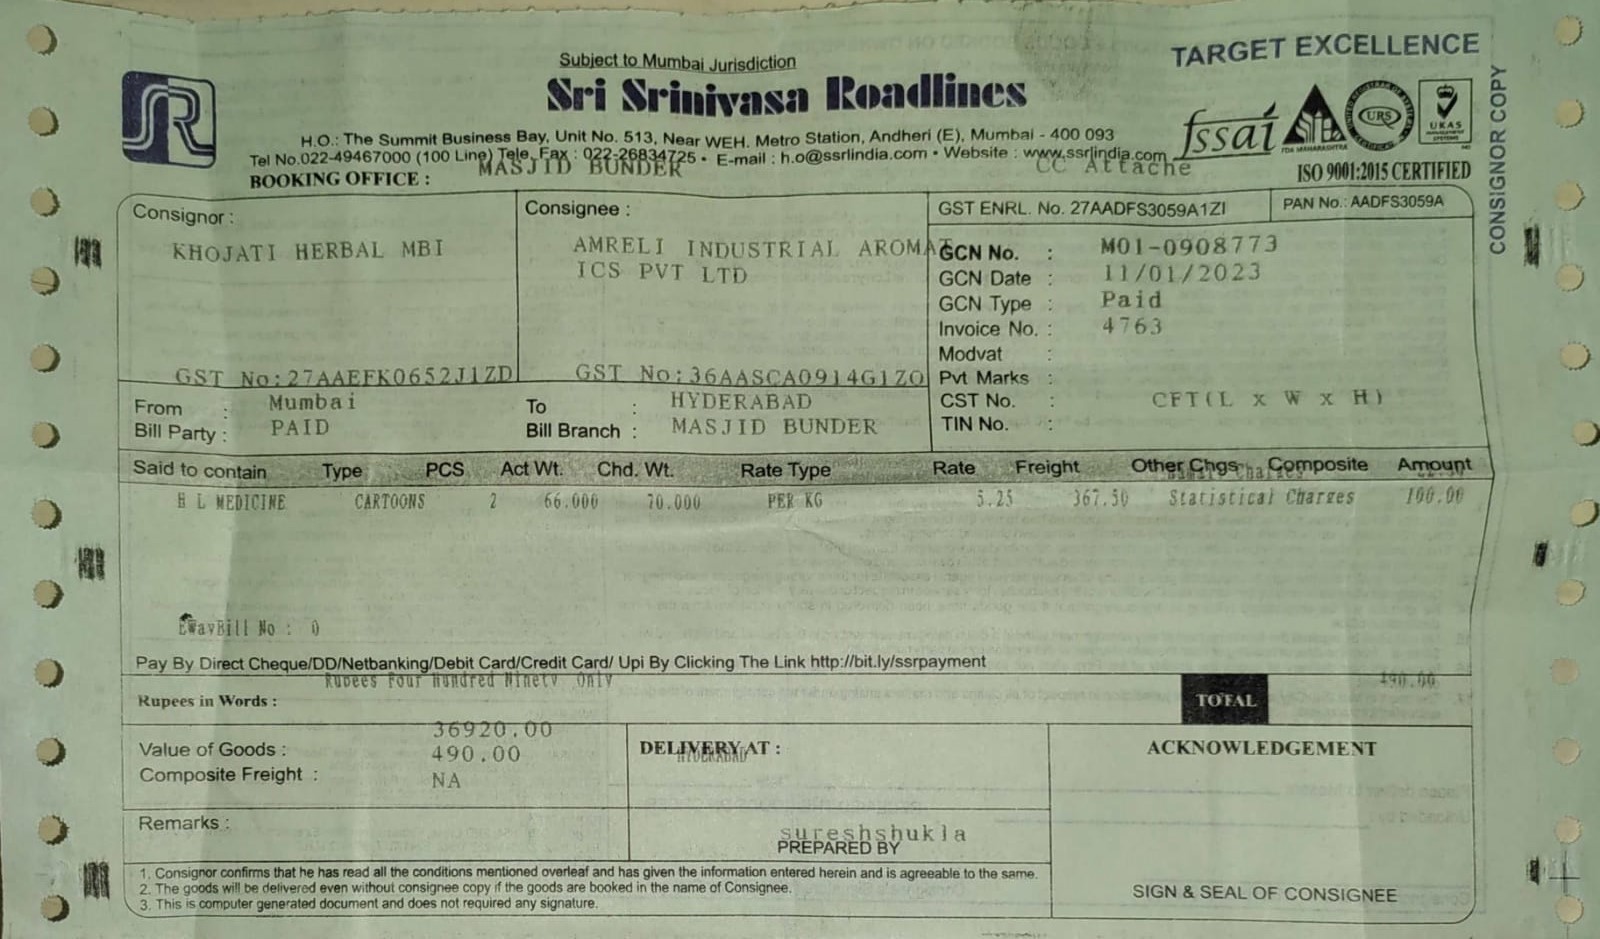 TARGET EXCELLENCE
Subject to Mumbai Jurisdiction
Sri Srinivasa Roadlines
H.O.: The Summit Business Bay, Unit No. 513, Near WEH. Metro Station, Andheri (E), Mumbai - 400 093
Tel No.022-49467000 (100 Line) Tele. Fax : 022-26834725 • E-mail : h.o@ssrlindia.com • Website : www.ssrlindia.com
fssai
FDA MAHARASHTRA
URS
UKAS
MANAGEMENT SYSTEMS
ISO 9001:2015 CERTIFIED
CONSIGNOR COPY
BOOKING OFFICE : MASJID BUNDER CC Attache
Consignor :
KHOJATI HERBAL MBI
GST No:27AAEFK0652J1ZD
Consignee :
AMRELI INDUSTRIAL AROMAT
ICS PVT LTD
GST No:36AASCA0914G1ZO
GST ENRL. No. 27AADFS3059A1ZI PAN No.: AADFS3059A
GCN No. : M01-0908773
GCN Date : 11/01/2023
GCN Type : Paid
Invoice No. : 4763
Modvat :
Pvt Marks :
CST No. : CFT(L x W x H)
TIN No. :
From : Mumbai To : HYDERABAD
Bill Party : PAID Bill Branch : MASJID BUNDER
Said to contain Type PCS Act Wt. Chd. Wt. Rate Type Rate Freight Other Chgs Composite Amount
H L MEDICINE CARTOONS 2 66.000 70.000 PER KG 5.25 367.50 Statistical Charges 100.00
EWayBill No : 0
Pay By Direct Cheque/DD/Netbanking/Debit Card/Credit Card/ Upi By Clicking The Link http://bit.ly/ssrpayment
Rupees Four Hundred Ninety Only
Rupees in Words : TOTAL 490.00
36920.00
Value of Goods : 490.00
Composite Freight : NA
DELIVERY AT :
HYDERABAD
ACKNOWLEDGEMENT
Remarks :
sureshshukla
PREPARED BY
1. Consignor confirms that he has read all the conditions mentioned overleaf and has given the information entered herein and is agreeable to the same.
2. The goods will be delivered even without consignee copy if the goods are booked in the name of Consignee.
3. This is computer generated document and does not required any signature.
SIGN & SEAL OF CONSIGNEE